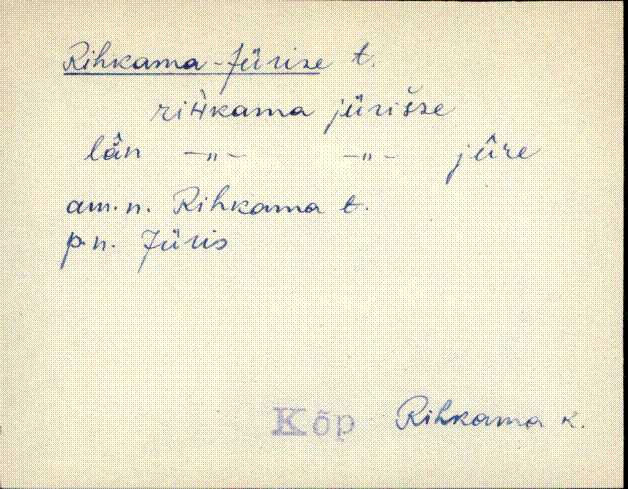 Rihkama-Jürise t.
riʜ̀kama jürišse
lǟn -„- -„- jûre
am.n. Rihkama t.
p.n. Jüris
Kõp Rihkama k.